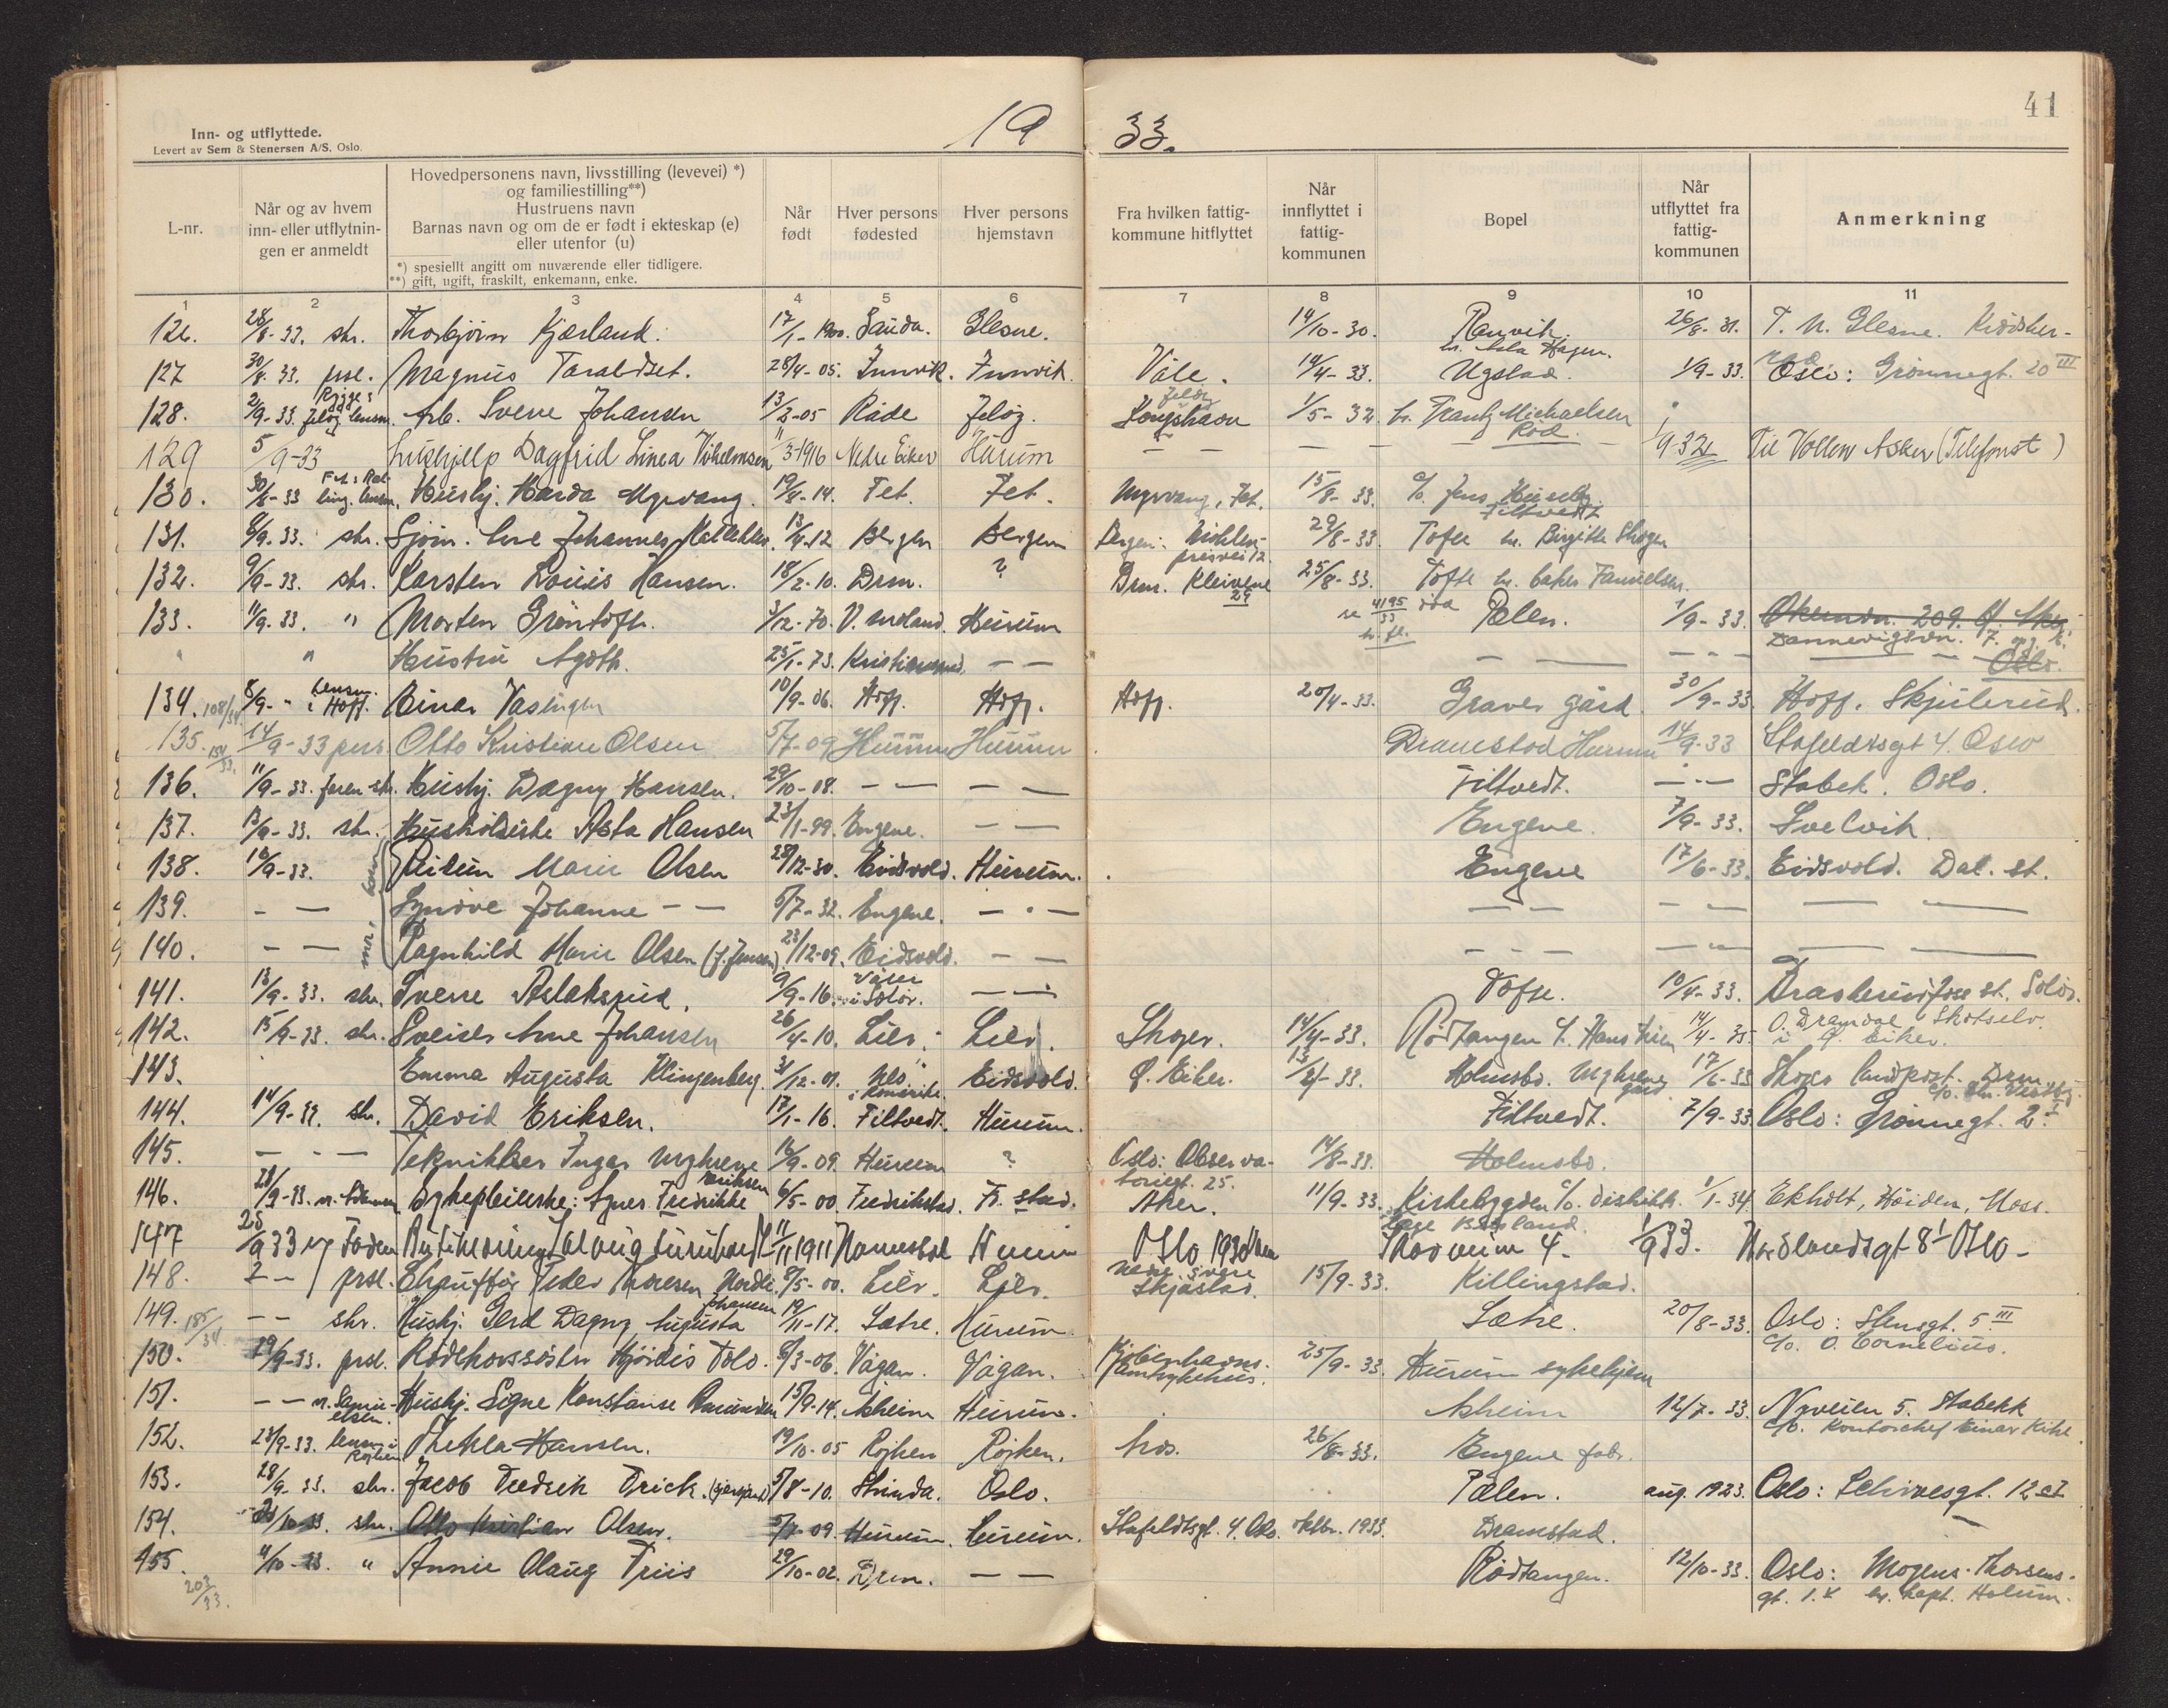 41
Inn- og utflyttede.
Levert av Sem & Stenersen A/S, Oslo.
19 33.
L-nr. Når og av hvem inn- eller utflytningen er anmeldt Hovedpersonens navn, livsstilling (levevei) *) og familiestilling**) Hustruens navn Barnas navn og om de er født i ekteskap (e) eller utenfor (u) *) spesiellt angitt om nuværende eller tidligere. **) gift, ugift, fraskilt, enkemann, enke. Når født Hver persons fødested Hver persons hjemstavn Fra hvilken fattigkommune hitflyttet Når innflyttet i fattigkommunen Bopel Når utflyttet fra fattigkommunen Anmerkning
1 2 3 4 5 6 7 8 9 10 11
126. 28/8-33. skr. Thorbjörn Kjærland. 17/1-1900. Sauda. Glesne. 14/10-30. Ranvik. 26/8-31. T. N. Glesne.
127 30/8-33. prsl. Magnus Taraldset. 28/4-05. Innvik. Innvik. Våle. 19/4-33. hr. Asla Hagen. Ugstad. 1/9-33. Oslo: Grönnegt. 20 III
128. 2/9-33. Rygge i Jeløy lensm. Arb. Sverre Johansen 13/2-05 Råde Jeløy. Jeløy Kongshavn 1/5-32 hr. Frantz Michaelsen Röd.
129 5/9-33 Hushjelp Dagfrid Linea Vilhelmsen 11/3-1916 Nedre Eiker Hurum — — — — — 9-32 Til Vollen Asker
130. 30/8-33 Fet i lensm. Hushj. Harda Myrvang. 19/4-14. Fet. Fet. Myrvang, Fet. 15/8-33. c/o. Jens Huseby Filtvedt
131. 8/9-33. skr. Sjöm. Johannes 13/4-12 Bergen Bergen Bergen: 29/8-33. Tofte hr. Birgithe Skogen
132. 9/9-33. skr. Karsten Louis Hansen. 18/2-10. Drm. ? Drm. Kleivene 29 25/8-33. Tofte hr. baker Samuelsen.
133. 11/9-33. " Morten Gröntoft. 3/12-70. Hurum se 4195/33 Pælen. 1/9-33. 209. Dannevigsvn. 7.
" " Hustru Agoth. 25/1-73. Kristiansund. — — — — — Oslo.
134. 108/34 8/9-" lensm. i Hoff. Einar Vasengen 10/9-06. Hoff. Hoff. Hoff. 20/4-33. Graver gård. 30/9-33. Hoff. Skjulerud.
135. 154/33. 14/9-33 pers Otto Kristian Olsen 5/7-09 Hurum Hurum Dramstad Hurum 14/9-33 Stafeldtsgt 4. Oslo
136. 11/9-33. skr. Hushj. Dagny Hansen. 29/10-08. — — — — Filtvedt. — " — Stabek. Oslo.
137. 13/9-33. skr. Husholderske Asta Hansen 23/1-99. Engene. — — Engene. 7/9-33. Svelvik.
138. 16/9-33. Marie Olsen 28/12-30. Eidsvold. Hurum. Engene 17/6-33. Eidsvold. Dal. st.
139. — — Synöve Johanne — — 5/7-32. Engene. — " — — — — — — —
140. — — Ragnhild Marie Olsen (f. Jensen) 23/12-09. Eidsvold. — — — — — — — —
141. 13/9-33. skr. Sverre Aslaksrud. 9/9-16. Våler i Solör. — — Tofte. 10/4-33. Braskereidfoss st. Solör.
142. 15/9-33. skr. Sveiser Arne Johansen 26/4-10. Lier. Lier. Skoger. 14/4-33. Rödtangen 14/4-35 O. Dramdal Skotselv. i Ö. Eiker.
143. Emma Augusta Klingenberg. 31/12-07. Nes i Romerike. Eidsvold. Ö. Eiker. Holmsbo. gård 17/6-33 Skoger landpost. Drm.
144. 14/9-33. skr. David Eriksen. 17/1-16. Filtvedt. Hurum. Filtvedt. 7/9-33 Oslo: Grönnegt. 2 I
145. — " — Tekniker Ingar 16/9-09. Hurum ? Oslo: Observatoriegt. 25. 14/8-33. Holmsbo.
146. 28/9-33. Sykepleierske: Agnes Fredrikke Eriksen 6/5-00. Fredrikstad. Fr. stad. Aker. 11/9-33. Kirkebygden c/o. distriktl. Aage 1/1-34. Ekholt, Höiden, Moss.
147 25/9 33 Solveig 11/11 1911 Hurum Oslo 1930 4- 1/9 33. Nordlandsgt 8 I Oslo-
148. — — prsl. Chaufför Peder Thoresen Nordli. 8/5-00. Lier. Lier. Skjåstad. 15/9-33. Killingstad.
149. 185/34. — — skr. Hushj. Gerd Dagny Augusta Johansen 19/11-17. Sætre. Hurum. Sætre. 20/8-33. Oslo: Stensgt. 5 III c/o. O. Cornelius.
150. 29/9-33. prsl. Rödekorssöster Hjördis Tolo. 8/3-06. Vågan. Vågan. Kjöbenhavns. amtsykehus. 25/9-33. Hurum sykehjem
151. — — Hushj. Signe Konstanse Amundsen 15/9-14. Åsheim Hurum. Åsheim 12/7-33. Nyveien 5. Stabekk c/o. Kontorchef Einar
152. 23/9-33. lensm. i Röyken Thekla Hansen. 19/10-05 Röyken Röyken. 26/8-33. Engene fabr.
153. 28/9-33. skr. Jacob Fredrik Brick. 5/8-10. Strinda. Oslo. Pælen. aug. 1923. Oslo: Schivesgt. 12
154. 2/10-33 skr. Otto Kristian Olsen. 5/7-09. Hurum. Hurum. Stafeldtsgt. 4. Oslo. oktbr. 1933. Dramstad. —
155. 203/33. 11/10-33. " Annie Olaug Friis 29/10-02. Drm. — — Rödtangen. 12/10-33. Oslo: Mogens Thorsensgt. 1. hr. kapt. Holum.